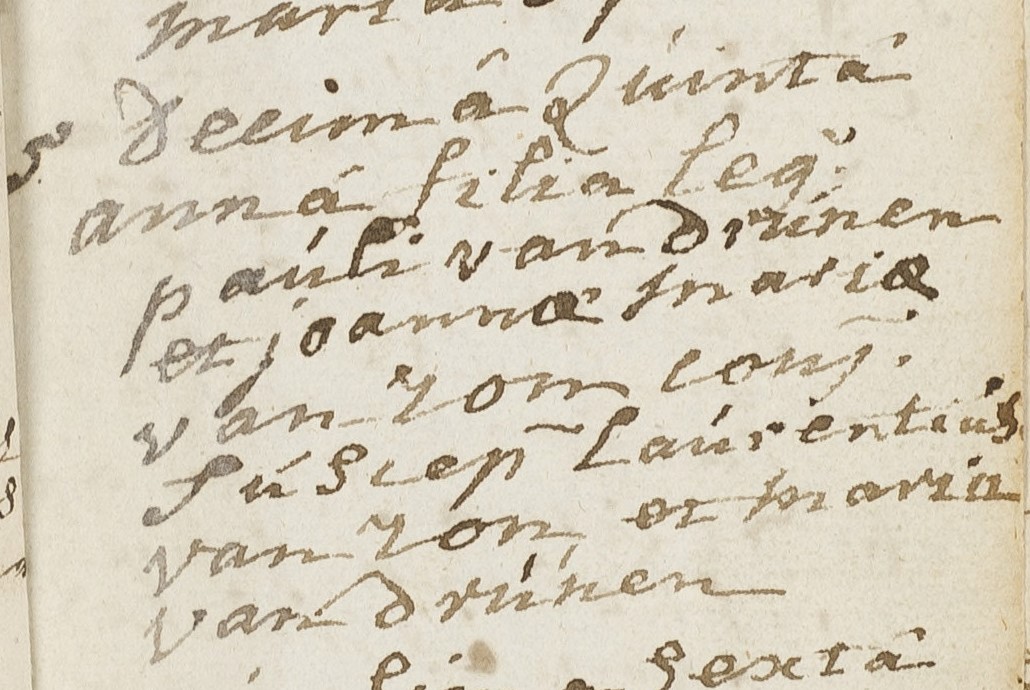 maria
5 Decimâ Quintâ
annâ filia leg
pauli van drúnen
et joannæ mariæ
van Zon conj.
Súscep laúrentiús
van Zon, et maria
van drúnen
sextâ